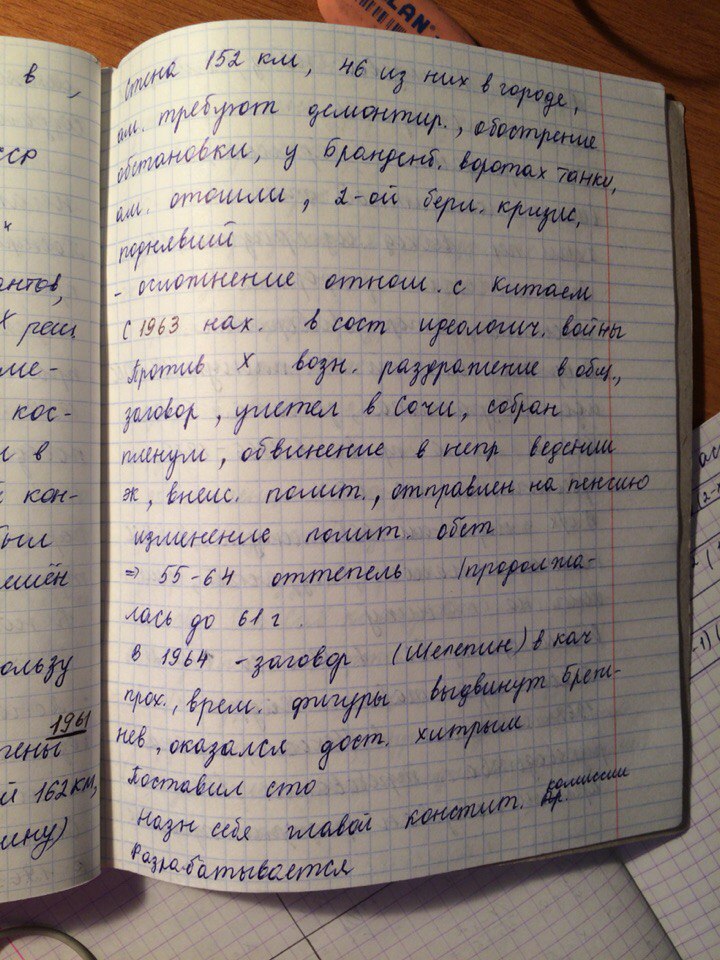 LAN
в,
ССР
антов,
Х реш
ме-
кос-
и в
кон-
был
ешён
ользу
1961
чены
й 162 км,
ину)
Стена 152 км, 46 из них в городе,
ам. требуют демонтир., обострение
обстановки, у Бранденб. воротах танки,
ам. отошли, 2-ой берл. кризис,
поднявший
- осложнение отнош. с Китаем
С 1963 нах. в сост идеологич. войны
Против Х возн. раздражение в общ.,
заговор, улетел в Сочи, собран
пленум, обвинение в непр ведении
эк, внеш. полит., отправлен на пенсию
изменение полит. обст
⇒ 55-64 оттепель (продолжа-
лась до 61 г.
В 1964 - заговор (Шелепин) в кач
прох., врем. фигуры выдвинут Бреж-
нев, оказался дост. хитрым
Поставил сто
Назн себя главой констит. комиссии
Разрабатывается